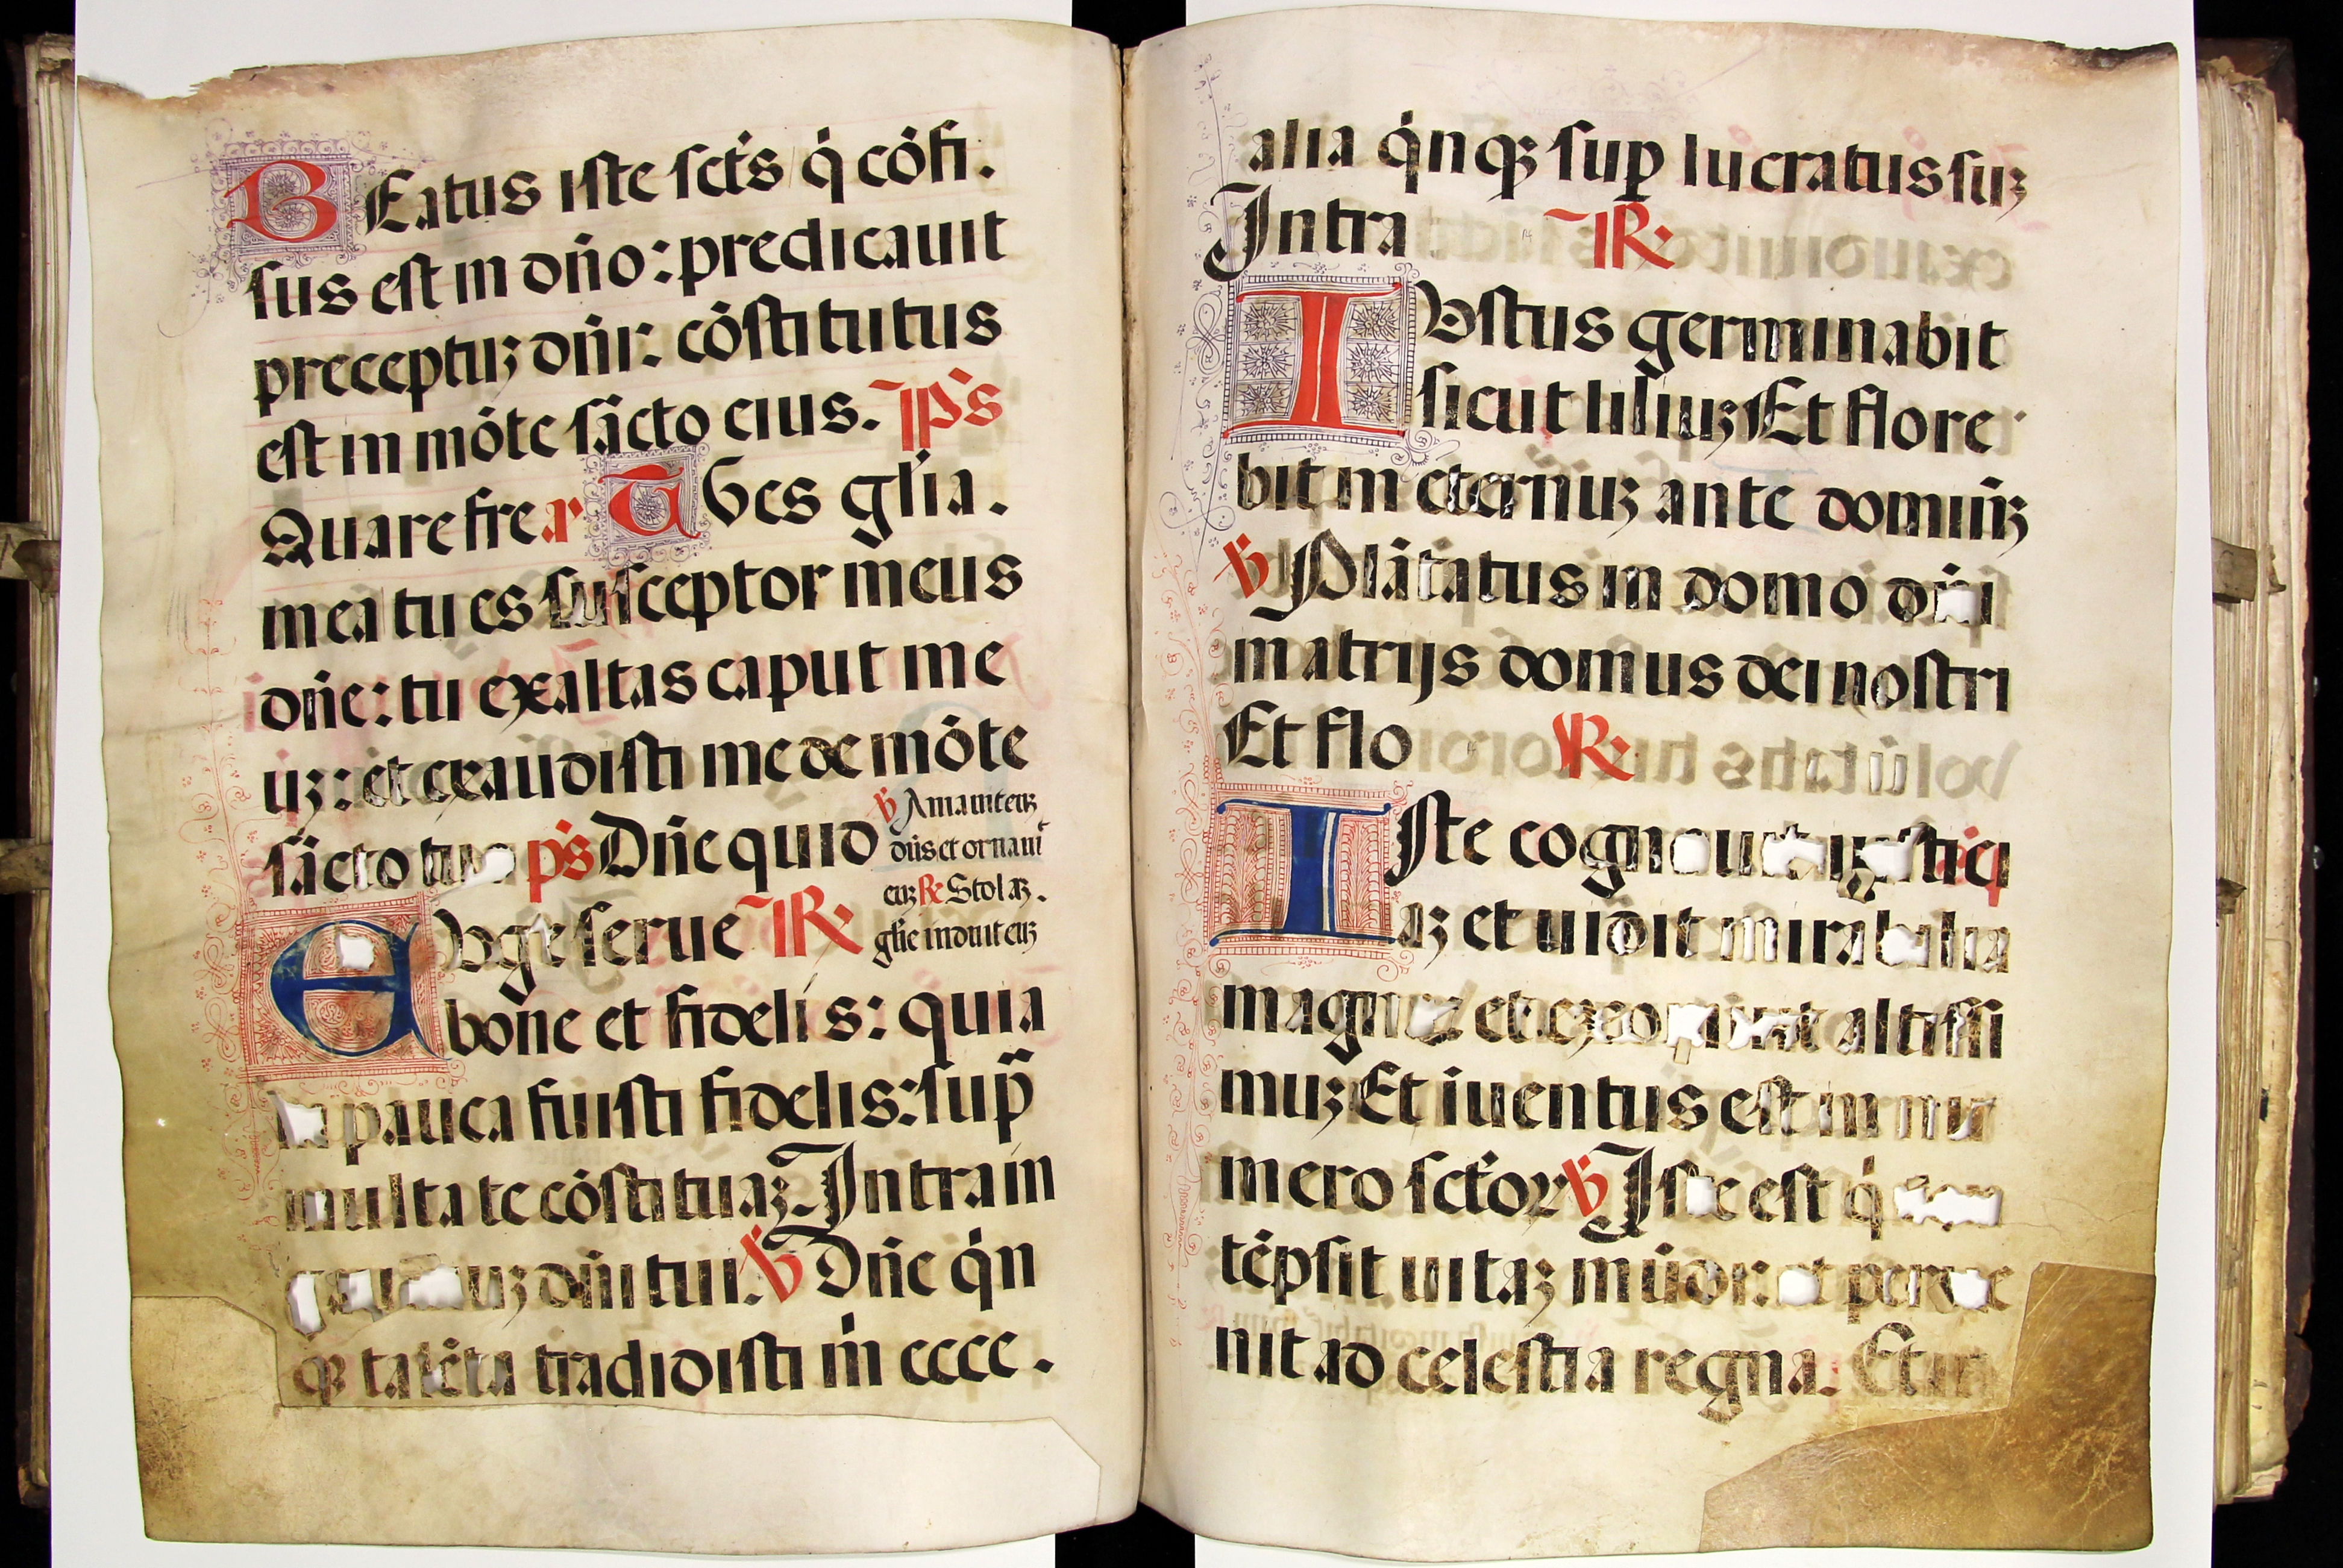 BEatus iste sct̄s q̇ cōfi.
sus est in dn̄o: predicauit
preceptuꝫ dn̄i: cōstitutus
est in mōte sācto eius. Ps̄
Quare fre ꝛ TVes gl̄ia.
mea tu es susceptor meus
dn̄e: tu exaltas caput me
uꝫ: et exaudisti me de mōte
sācto tuo ps̄ Dn̄e quid
℣ Amauit euꝫ
dn̄s et ornauit
euꝫ ℟ Stolaꝫ.
gl̄ie induit euꝫ
EVge serue ℟
bone et fidelis: quia
pauca fuisti fidelis: sup̄
multa te cōstituaꝫ. Intra in
gaudiuꝫ dn̄i tui. ℣ Dn̄e q̇n
qꝫ talēta tradidisti m̄ ecce.
alia q̇nqꝫ suꝑ lucratus suꝫ
Intra ℟
IVstus germinabit
sicut liliuꝫ Et flore
bit in eternuꝫ ante dominꝫ
℣ Plātatus in domo dn̄i
in atrijs domus dei nostri
Et flo ℟
ISte cognouit iustici
aꝫ et uidit mirabilia
magna et exorauit altissi
muꝫ Et iuentus est in nu
mero sct̄oꝝ ℣ Iste est q̇
tēpsit uitaꝫ mūdi: et perue
nit ad celestia regna. Et in